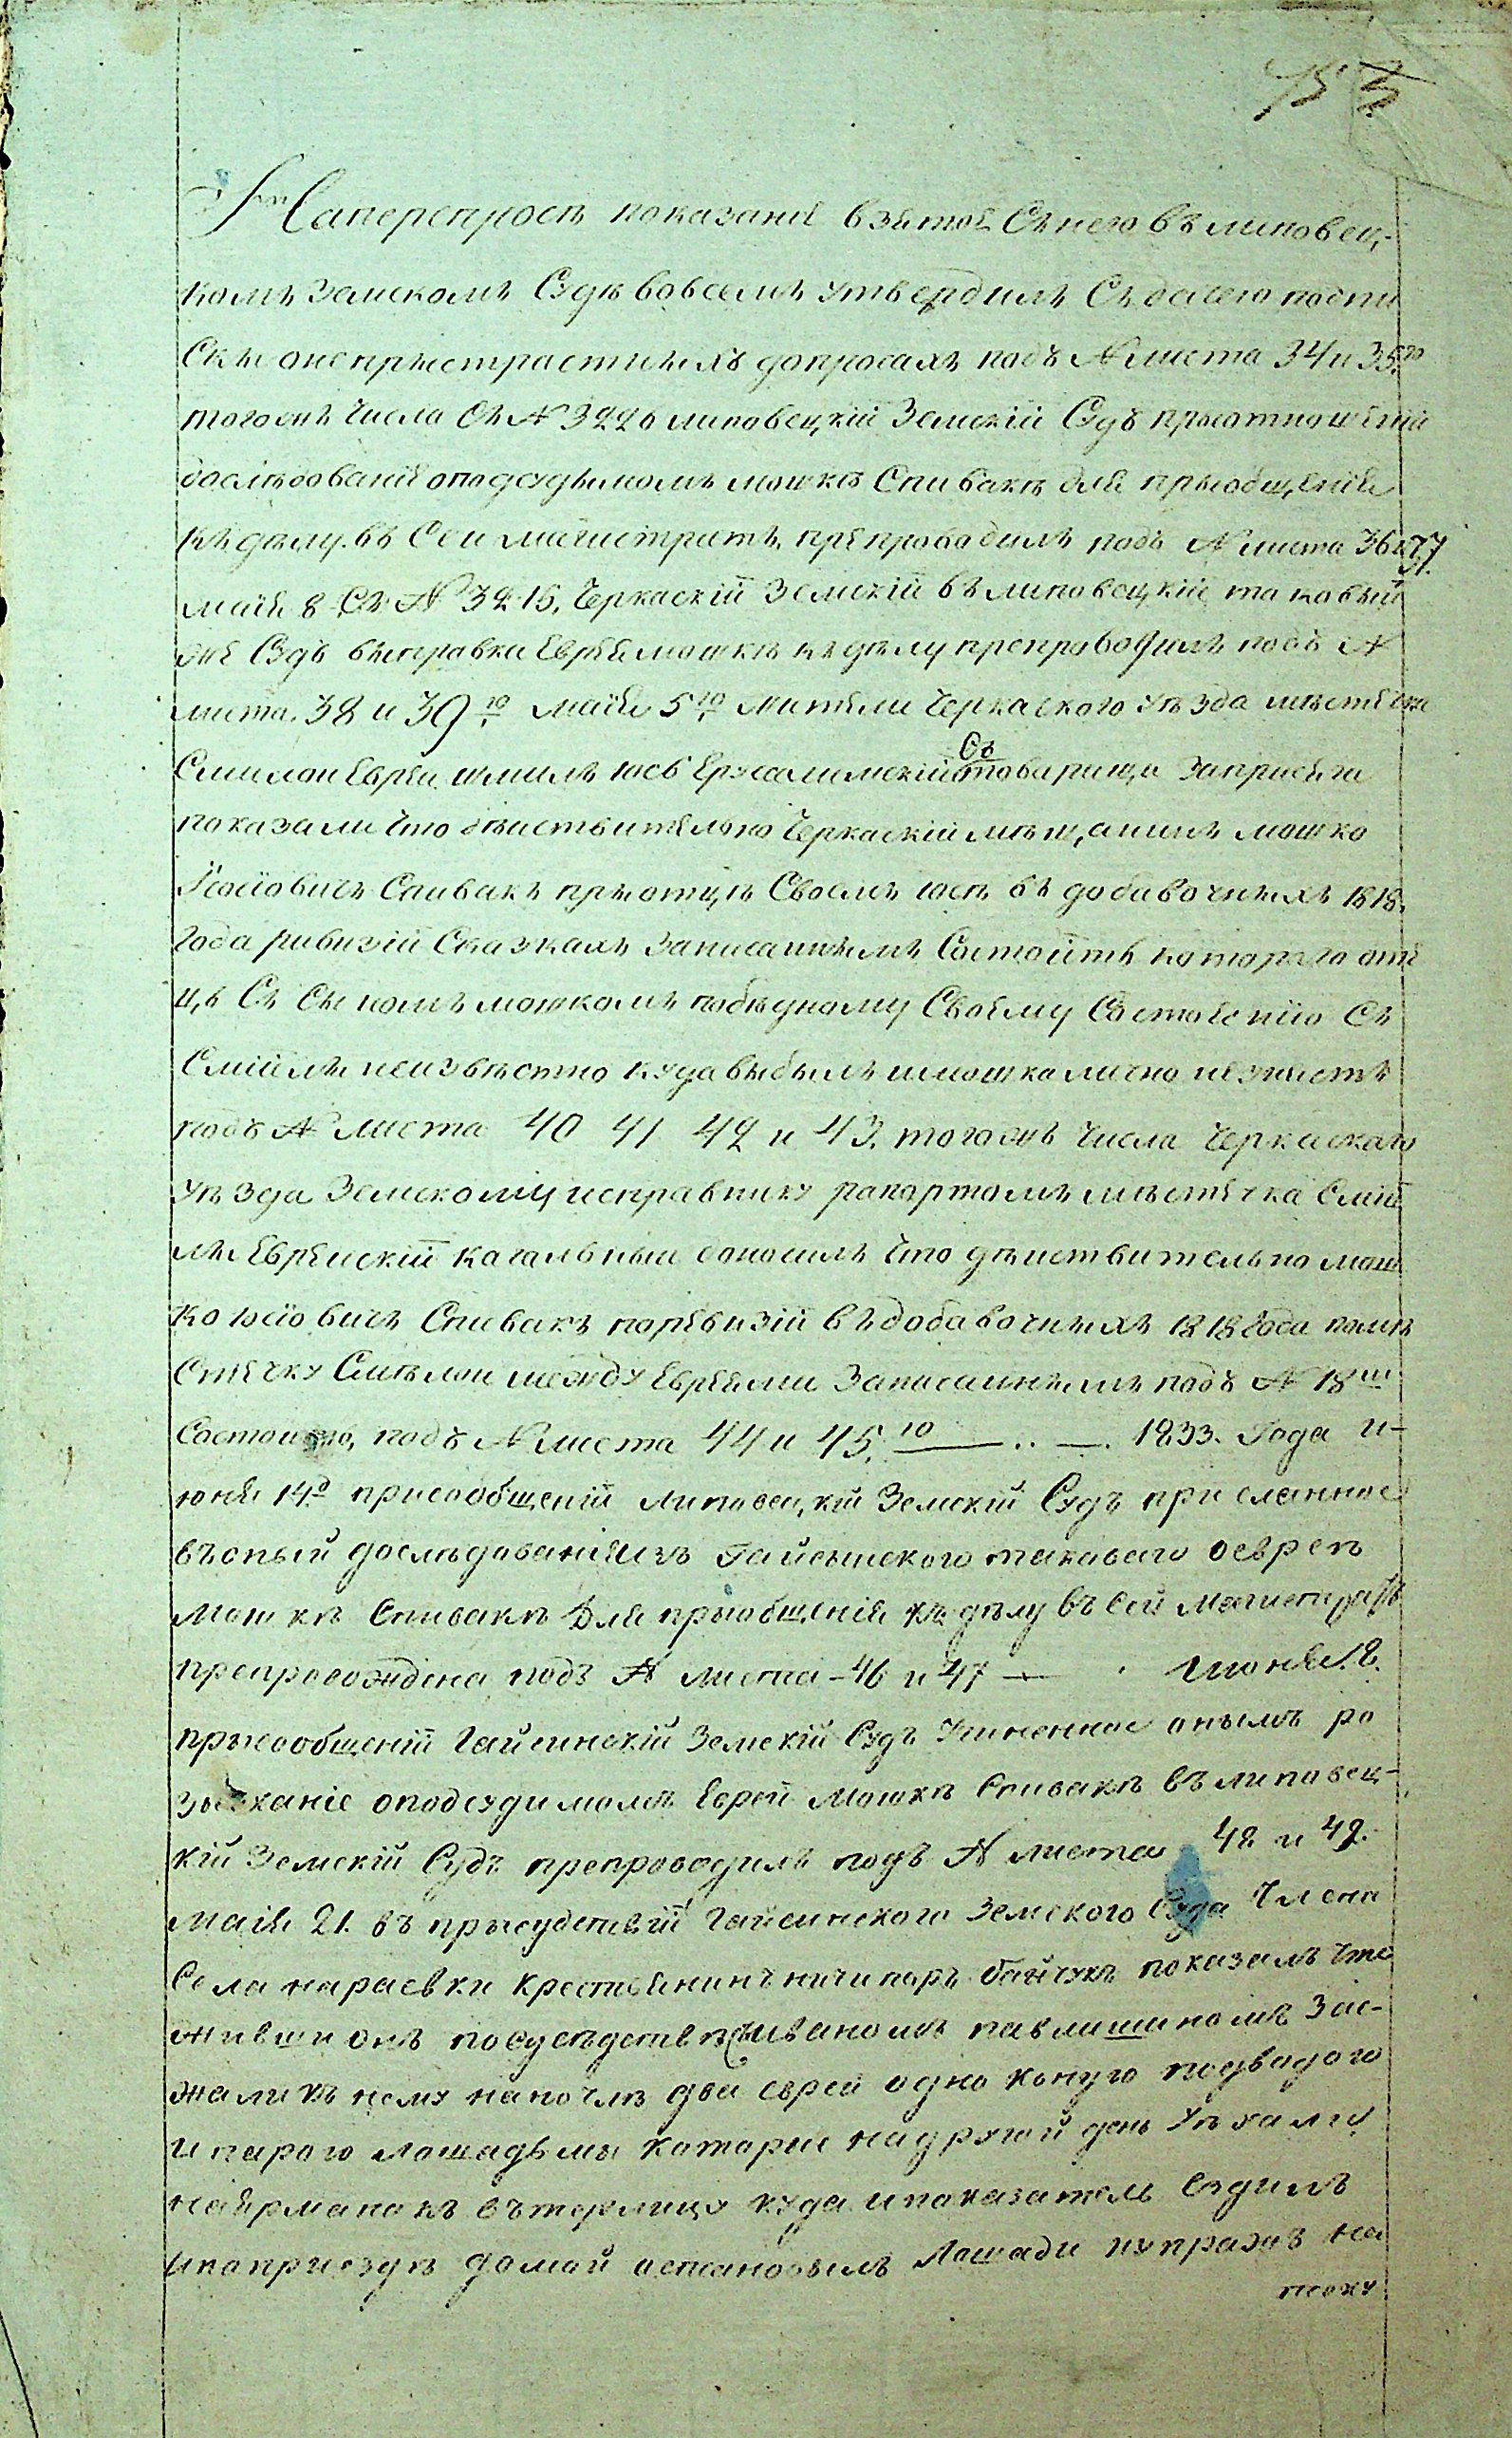 153
Наперепросъ показаніе взятой Съ него въ липовец-
комъ Земскомъ Судѣ вовсемъ утвердилъ Съ дачею подпи
Скы онепрыстрастныхъ допросахъ подъ № листа 34 и 35.го
тогожъ числа Съ № 3226 липовецкій Земскій Судъ прыотношеніи
дослѣдованіе оподсудымомъ мошкѣ Спивакѣ для прыобщеніе
Къ дѣлу въ Сеи магистратъ препроводилъ подъ № листа 36 и 37
маія 8 Съ № 3215. Черкаскій Земскій въ липовецкій таковый
же Судъ выправка Еврея мошкѣ къ дѣлу препроводилъ подъ №
листа. 38 и 39.ю маія 5.го жители Черкаского уѣзда мѣстечка
Смилои Евреи шмиль юсь Ерусалимскій Съ товарищи Заприсяги
показали что дѣиствительно Черкаскій мѣщанинъ мошко
Іосіовичъ Спивакъ прыотцѣ Своемъ юсѣ въ добавочныхъ 1818.
Года ривизіи Сказкахъ Записаннымъ Состоитъ которого оте
цъ Съ Сыномъ мошкомъ побѣдному Своему Состоянію Съ
Смілы неизвѣстно куда выбылъ имошка лично незнаетъ
подъ № листа 40 41 42 и 43. тогожъ числа Черкаского
уѣзда Земскому исправнику рапортомъ мѣстечка Смій
лы Еврейскій кагальныи доносилъ что дѣиствительно мош
ко юсіовичъ Спивакъ поревизіи въ добавочныхъ 1818 года помѣ
Стечку Смѣлои между Евреями Записаннымъ подъ № 18м
Состоитъ, подъ № листа 44 и 45.ю 1833. Года и-
юня 14.о присообщеніи Липовецкій Земскій Судъ присланное
въоный дослѣдованія изъ Гайсинского таковаго оеврѣ
мошкѣ Спивакѣ Для прыобщенія къ дѣлу въ Сей магистратъ
препровождена подъ № листа - 46 и 47 Июня 12.
прысообщеніи Гайсинскій Земскій Судъ Учиненное онымъ ро
зысканіе оподсудимомъ Еврей Мошкѣ Спивакѣ въ липовец-
кій Земскій Судъ препроводилъ подъ № листа 48 и 49.
маія 21. въ прысудствіи Гайсинского Земского Суда Члена
Села нараевки крестьянинъ ничипоръ байчукъ показалъ что
живши онъ посусѣдствѣ Сывиваномъ павлишиномъ Зае-
жали къ нему наночлѣ два еврей одно коную подводою
и парою лошадьмы которыи надругои день уѣхали
наярмарокъ въ терлицу куда ипоказатель ездилъ
ипоприездѣ домой остановылъ Лошади пупразъ на
току